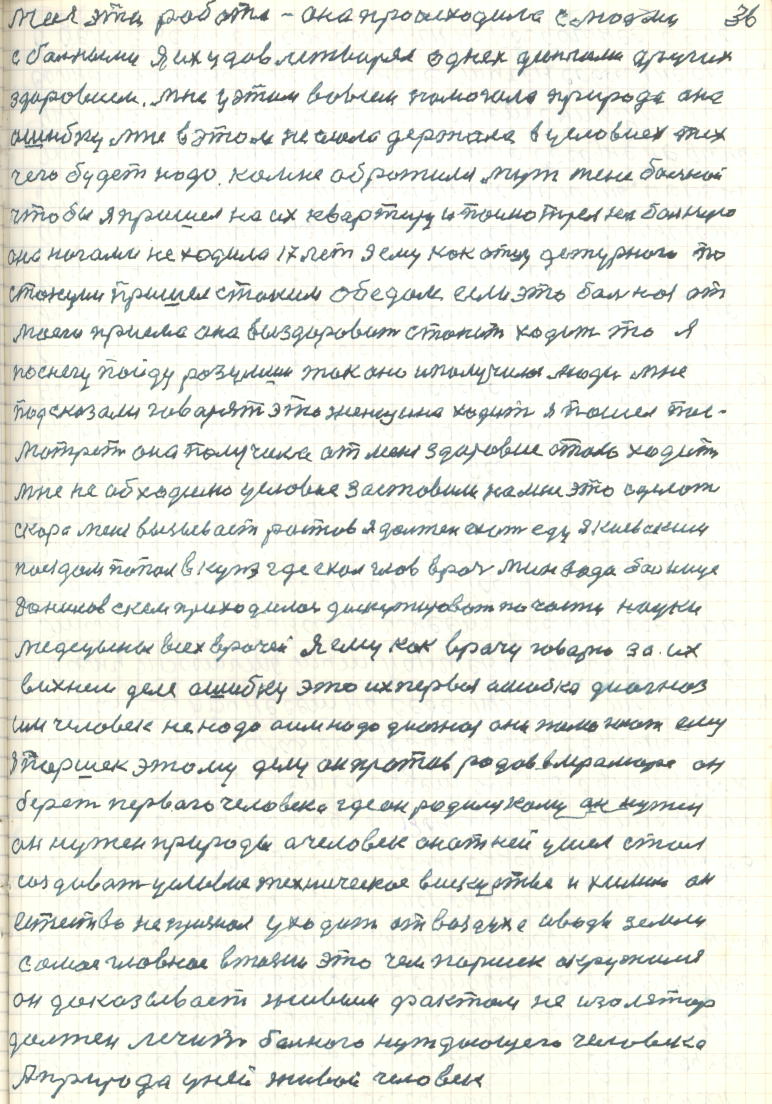 36
Моя эта работа – она происходила с людми
с болными я их удовлетворял однех денгами других
здоровием. мне у этим во всем помогала природа она
ошибку мне в этом не дала держала в условиех тех
чего будет надо. ко мне обротился муж жене болной
чтобы я пришел на их квартиру и поинотрел на болную
она ногами не ходила 17 лет я ему как отцу дежурного по
станцыи пришел с таким обедом если это болноя от
моего приема она выздоровит станит ходит то я
по снегу пойду розумши так оно и получилос люди мне
подсказали говарят это женщина ходит я пошел пос-
мотреть она получила от меня здоровие стала ходить
мне необходимо условие заставили на мне это сделат
скора меня вызывает ростов я должен ехат еду я киевским
поездом попал в купэ где ехал глав врач Минвода болнице
с кем приходилос дискутироват по части науки
медецыны всех врачей я ему как врачу говарю за их
в ихнем деле ошибку это их первоя ошибка диогноз
им человек не надо а им надо диогноз они помогают ему
Я паршек этому делу он против родов в мраморе он
берет первого человека где он родилу кому он нужен
он нужен природы а человек она от ней ушел стал
создават условие техническое в искуства и химию он
естество не признал уходит от воздуха и воды земли
самое главное в жизни это чем паршек окружился
он доказывает живым фактом не изолятор
должен лечить болного нуждающего человека
А природа у ней живой человек